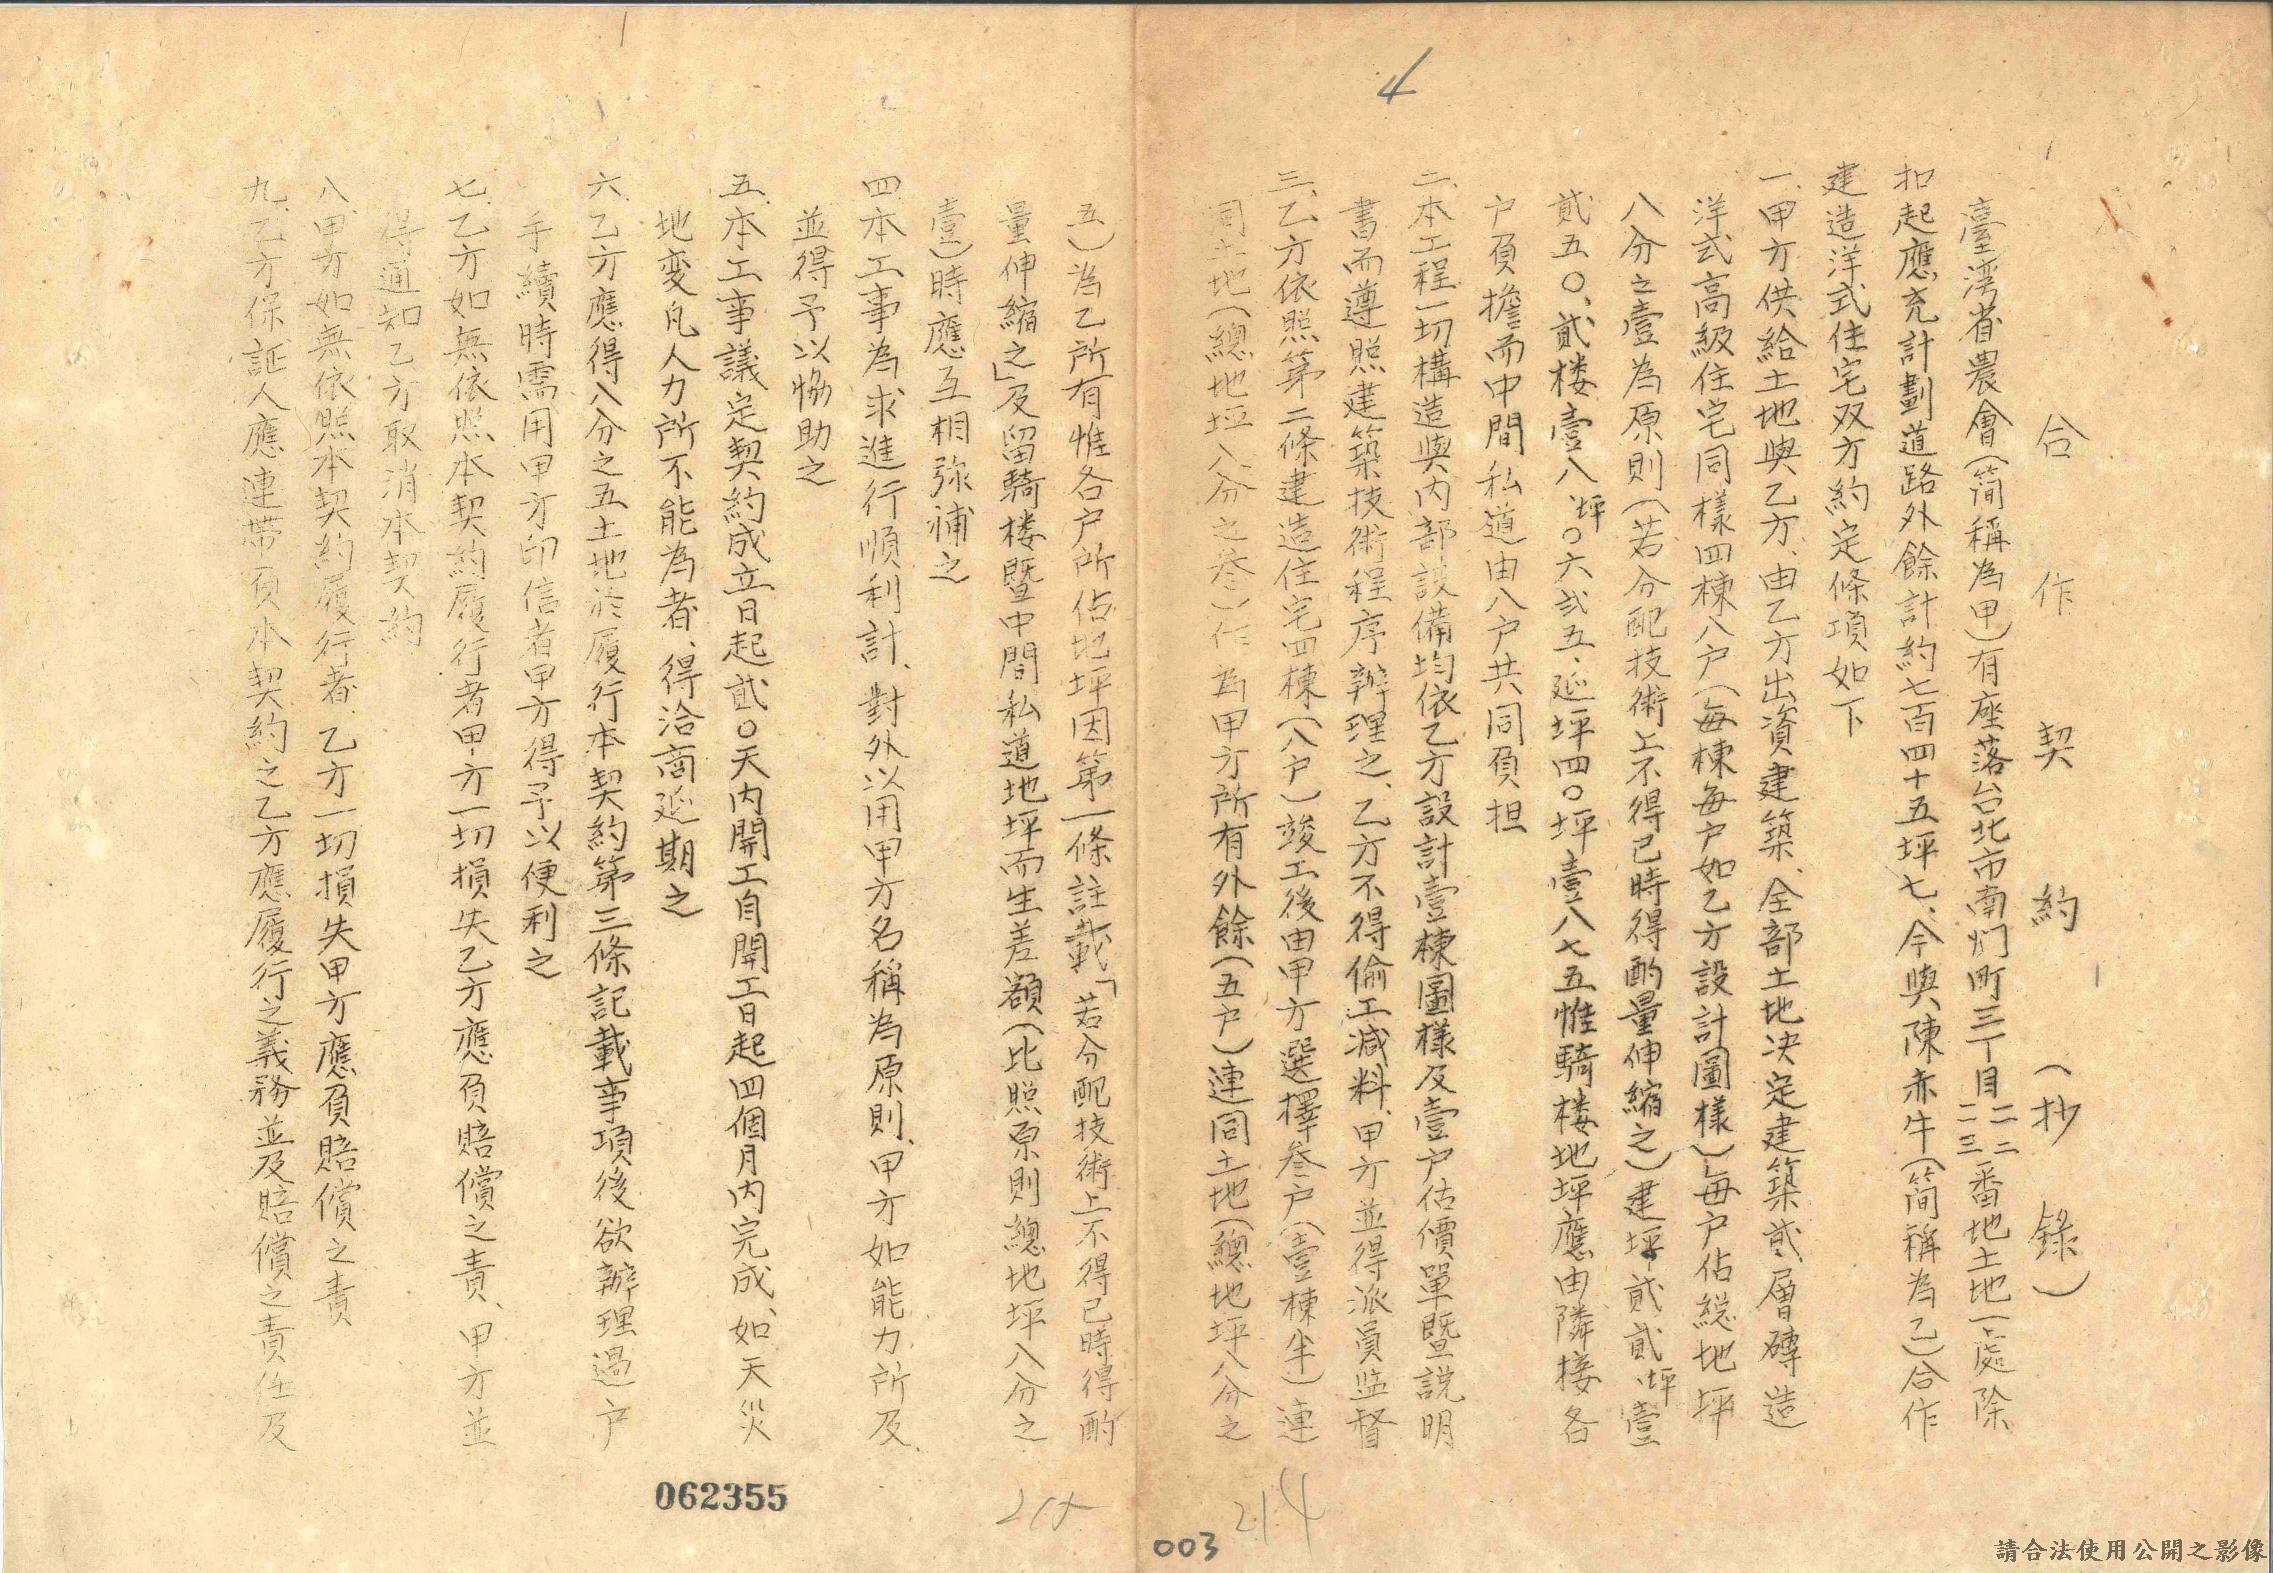 4
合作契約(抄錄)
臺湾省農會(简稱為甲)有座落台北市南門町三丁目二二二三番地土地一處除
扣起應充計劃道路外餘計約七百四十五坪七、今與陳赤牛(简稱為乙)合作
建造洋式住宅双方約定條項如下
一、甲方供給土地與乙方、由乙方出資建築、全部土地决定建築貳層磚造
洋式高級住宅同樣四棟八户(每棟每户如乙方設計圖樣)每户佔総地坪
八分之壹為原則(若分配技術上不得已時得酌量伸縮之)建坪貳貳坪壹
貳五〇、貳楼壹八坪〇六弍五、延坪四〇坪壹八七五惟騎楼地坪應由隣接各
户負擔而中間私道由八户共同負担
二、本工程一切構造與内部設備均依乙方設計壹棟圖樣及壹户估價單暨説明
書而遵照建築技術程序辦理之、乙方不得偷工減料、甲方並得派員监督
三、乙方依照第二條建造住宅四棟(八户)竣工後由甲方選擇叁户(壹棟半)連
同土地(總地坪八分之叁)作為甲方所有外餘(五户)連同土地(總地坪八分之
五)為乙所有惟各户所佔地坪因第一條註載「若分配技術上不得已時得酌
量伸縮之」及留騎楼暨中間私道地坪而生差額(比照原則總地坪八分之
壹)時應互相弥補之
四、本工事為求進行順利計、對外以用甲方名稱為原則、甲方如能力所及
並得予以恊助之
五、本工事議定契約成立日起貳〇天内開工自開工日起四個月内完成、如天災
地変凡人力所不能為者、得洽商延期之
六、乙方應得八分之五土地於履行本契約第三條記載事項後欲辦理過户
手續時需用甲方印信者甲方得予以便利之
七、乙方如無依照本契約履行者甲方一切損失乙方應負賠償之責、甲方並
得通知乙方取消本契約
八、甲方如無依照本契約履行者、乙方一切損失甲方應負賠償之責
九、乙方保証人應連帶負本契約之乙方應履行之義務並及賠償之責任及
062355
214
003
請合法使用公開之影像